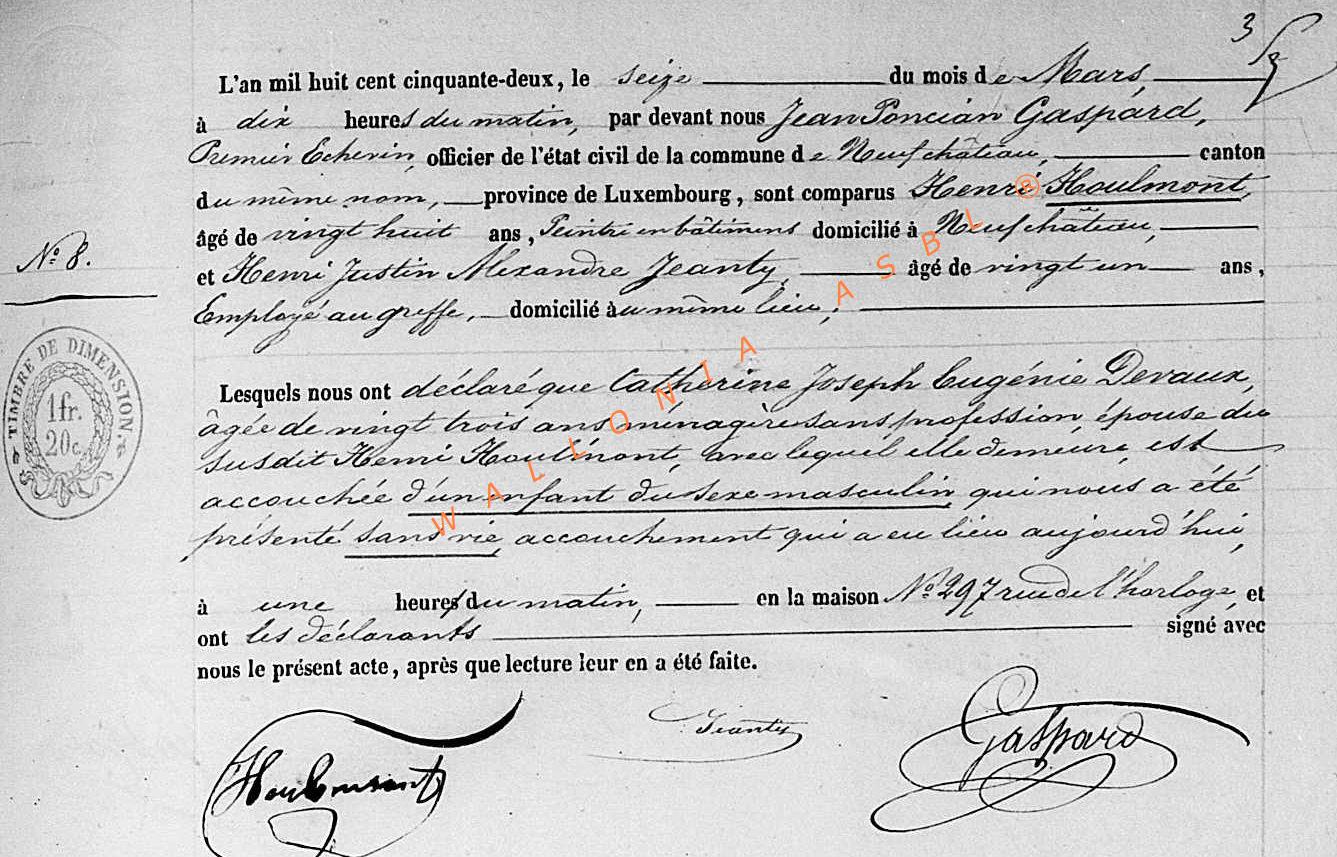 3
L'an mil huit cent cinquante-deux, le seize du mois de Mars,
à dix heures du matin, par devant nous Jean Poncian Gaspard,
Premier Echevin, officier de l'état civil de la commune de Neufchâteau, canton
du même nom, province de Luxembourg, sont comparus Henri Houlmont,
âgé de vingt huit ans, Peintre en bâtimens domicilié à Neufchâteau,
et Henri Justin Alexandre Jeanty, âgé de vingt un ans,
Employé au greffe, domicilié au même lieu,
N° 8.
TIMBRE DE DIMENSION.
1fr.
20c.
Lesquels nous ont déclaré que Catherine Joseph Eugénie Devaux,
âgée de vingt trois ans ménagère sans profession, épouse du
susdit Henri Houlmont, avec lequel elle demeure, est
accouchée d'un enfant du sexe masculin qui nous a été
présenté sans vie, accouchement qui a eu lieu aujourd'hui,
à une heure du matin, en la maison N° 297 rue de l'horloge, et
ont les déclarants signé avec
nous le présent acte, après que lecture leur en a été faite.
Houlmont Jeanty Gaspard
WALLONIA ASBL ®